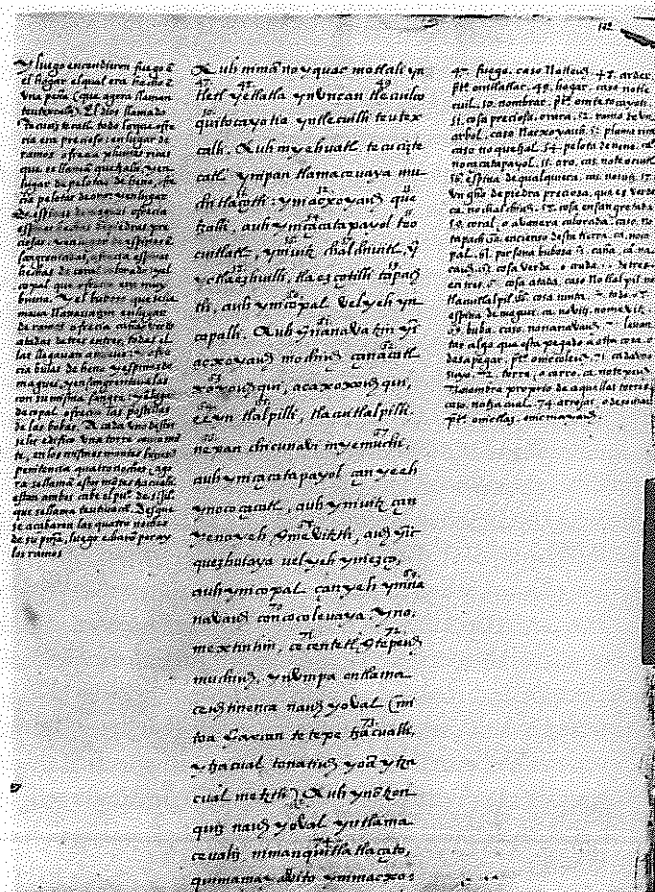 122
Y luego encendieron fuego ẽ
el hogar el qual era hecho ẽ
una peña (que agora llaman
teutexcalli) El dios llamado
Tecuciztecatl todo lo que ofre
cia era precioso: en lugar de
ramos ofrecia plumas ricas
que se llamã quetzali, y en
lugar de pelotas de heno, ofre
cia pelotas de oro: y en lugar
De espinas de maguei ofrecia
espinas hechas de piedras pre
ciosas: y en lugar de espinas ẽ
sangrentadas, ofrecia espinas
hechas de coral colorado: y el
copal que ofrecia era muy
bueno. Y el buboso que se lla
maua Nanauatzin en lugar
de ramos ofrecia cañas verdes
atadas de tres en tres, todas el
las llegauan a nueue: ofre
cia bolas de heno y espinas de
maguei, y ensangrentaualas
con su misma sangre, y en lugar
de copal, ofrecia las postillas
de las bubas. A cada uno destos
se les edifico una torre como mõ
te, en los mismos montes hizierõ
penitencia quatro noches, ago
ra se llamã estos mõtes tzaqualli
estan ambos cabe el puº de s. juã
que se llama teutiuacã. Desque
se acabaron las quatro noches
de su pña, luego echarõ por ay
los ramos
Auh niman no yquac motlali yn
tletl ye tlatla yn uncan tlecuilco
quitocayotia yn tlecuilli teutex
calli. Auh yn yehuatl tecucizte
catl yn ipan tlamaceuaya mu
chi tlaçotli: ymacxoyauh que
tzalli, auh yn içacatapayol teo
cuitlatl, yniuitz chalchiuitl, y
tlaezçotilli tapach
tli, auh ynicopal uel yeh yn
copalli. Auh
yacxoyauh mochiuh çan acatl
xoxouhqui, acaxoxouhqui,
eeyn tlalpilli, tlacuitlalpilli
nepan chicunaui yn ye muchi,
auh yn içacatapayol çan yeeh
yn ococacatl, auh yn iuitz çan
ye no yeh y meuitztli, auh ynic
quezhuiaya uel yeh yniezço,
auh ynicopal çan yeh yn ina
nauauh concocoleuaya. Yno
mextin tin, cecentetl ytepeuh
muchiuh, yn umpa ontlama
ceuhtinenca nauhyoual (mi
toa axcan tetepe tzacualli,
ytzacual tonatiuh yoã ytza
cual metztli) Auh yn õtzon
quiz nauhyoual yntlama
ceualiz niman quitlatlaçato,
quimamayauito ymmacxo:
47. fuego. caso Notleuh. 48. arder.
ptº. onitlatlac. 49. hogar. caso notle
cuil. 50. nombrar. ptº. onitetocayoti.
51. cosa preciosa. 52. ramo de un
arbol. caso Nacxoyauh. 53. pluma rica
caso noquetzal. 54. pelota de heno. ca.
noçacatapayol. 55. oro. cas. noteocuitl
56. espina de qualquiera. cas. nouitz. 57.
un gñº de piedra preciosa, que es verde
ca. nochalchiuh. 58. cosa ensangrentada
59. coral, o a
tapach. 60. encienso desta tierra. ca. noco
pal. 61. persona bubosa. 62. caña. ca. na
cauh. 63. cosa verde o cruda. 64. de tres
en tres. 65. cosa atada. caso Notlalpil. no
tlacuitlalpil. 66. cosa junta. 67. todo. 68.
espina de maguei. ca. nouitz, nomeuitz
69. buba. caso nonanauauh. 70. leuan
tar algo que esta pegado a otra cosa. o
despegar. ptº. onicoleuh. 71. cada vno
suyo. 72. torre, o cerro. ca. notepeuh
73 nombre proprio de aquellas torres,
caso. notzacual. 74. arrojar, o desechar
ptº.